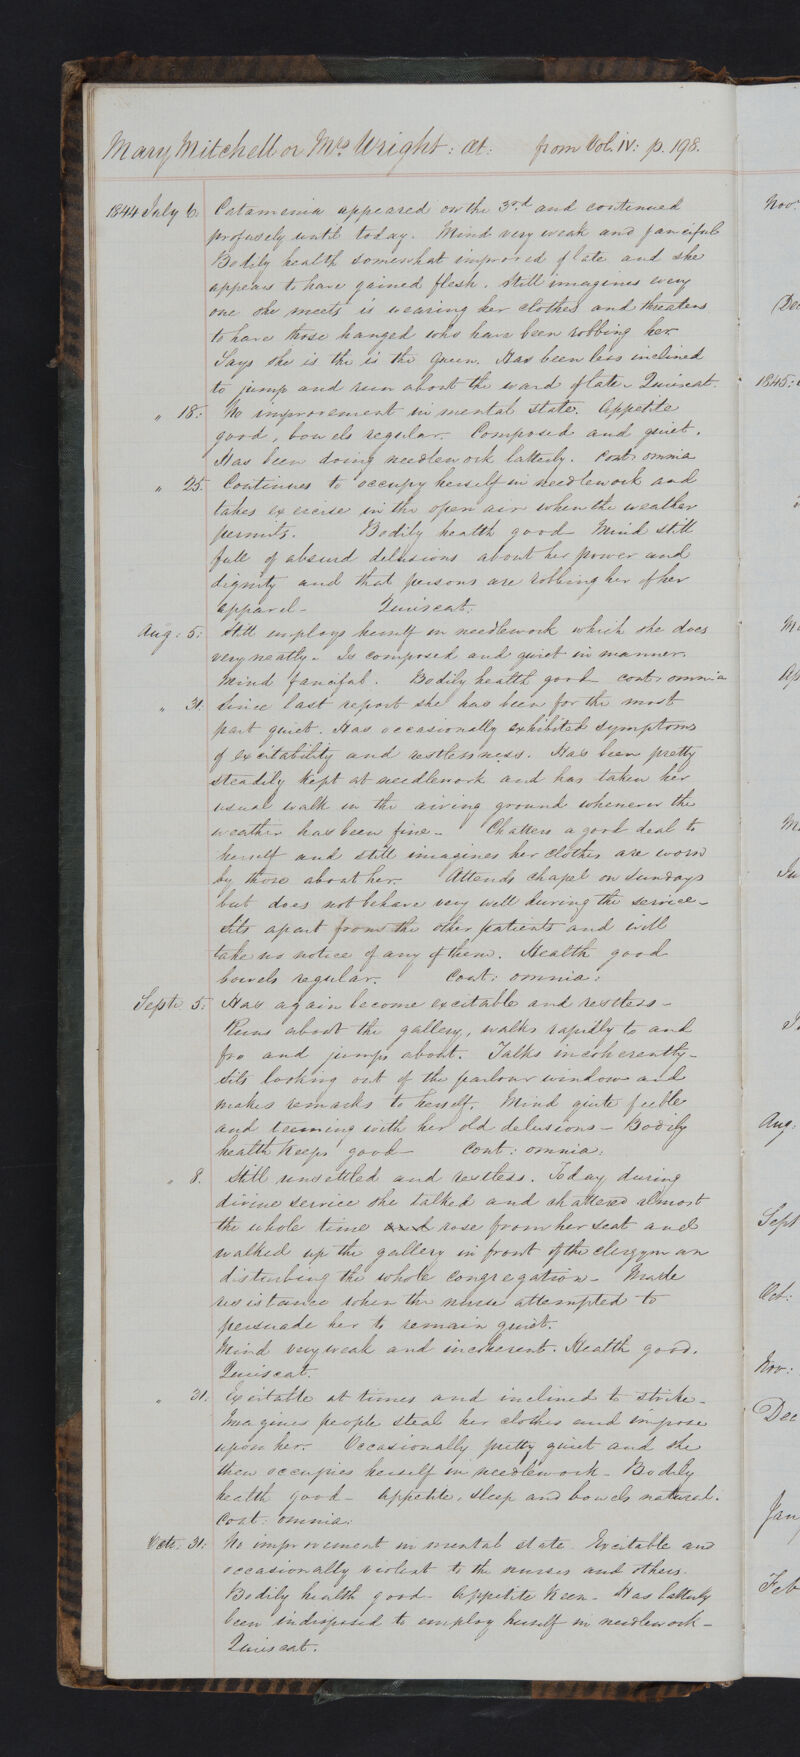 Mary Mitchell or Mrs. Wright: æt: from Vol. IV: p. 198.
1844 July 6. Catamenia appeared on the 3rd and continued
profusely until today. Mind very weak and fanciful
Bodily health somewhat improved of late and she
appears to have gained flesh. Still imagines every
one she meets is wearing her clothes and threatens
to have those hanged who have been robbing her
Says she is the is the Queen. Has been less inclined
to jump and run about the ward of late - Quiescat.
" 18: No improvement in mental state. Appetite
good, bowels regular. Composed and quiet.
Has been doing needlework latterly. Cont: omnia
" 25. Continues to occupy herself in needlework and
takes exercise in the open air when the weather
permits. Bodily health good Mind still
full of absurd delusions about her power and
dignity and that persons are robbing her of her
apparel - Quiescat.
Aug: 5: Still employs herself in needlework which she does
very neatly. Is composed and quiet in manner.
Mind fanciful. Bodily health good cont: omnia
" 31. Since last report she has been for the most
part quiet. Has occasionally exhibited symptoms
of excitability and restlessness. Has been pretty
steadily kept at needlework and has taken her
usual walk in the airing ground whenever the
weather has been fine - Chatters a good deal to
herself and still imagines her clothes are worn
by those about her. Attends chapel on Sundays
but does not behave very well during the service -
Sits apart from the other patients and will
take no notice of any of them. Health good
bowels regular. Cont: omnia:
Sept: 5: Has again become excitable and restless -
Runs about the gallery, walks rapidly to and
fro and jumps about. Talks incoherently -
Sits looking out of the parlour window and
makes remarks to herself. Mind quite feeble
and teeming with her old delusions - Bodily
health keeps good - Cont: omnia:
" 8. Still unsettled and restless. Today during
divine service she talked and chattered almost
the whole time and rose from her seat and
walked up the gallery in front of the clergyman
disturbing the whole congregation - Made
resistance when the nurse attempted to
persuade her to remain quiet.
Mind very weak and incoherent. Health good.
Quiescat.
" 31. Excitable at times and inclined to strike -
Imagines people steal her clothes and impose
upon her. Occasionally pretty quiet and she
then occupies herself in needlework - Bodily
health good - Appetite, sleep and bowels natural.
Cont: omnia:
Octr: 31: No improvement in mental state Excitable and
occasionally violent to the nurses and others.
Bodily health good - Appetite keen - Has latterly
been indisposed to employ herself in needlework -
Quiescat.
Nov:
Dec
1845:
M
Ap
Aug:
Sept
Oct:
Nov:
Dec
Jan
Feb